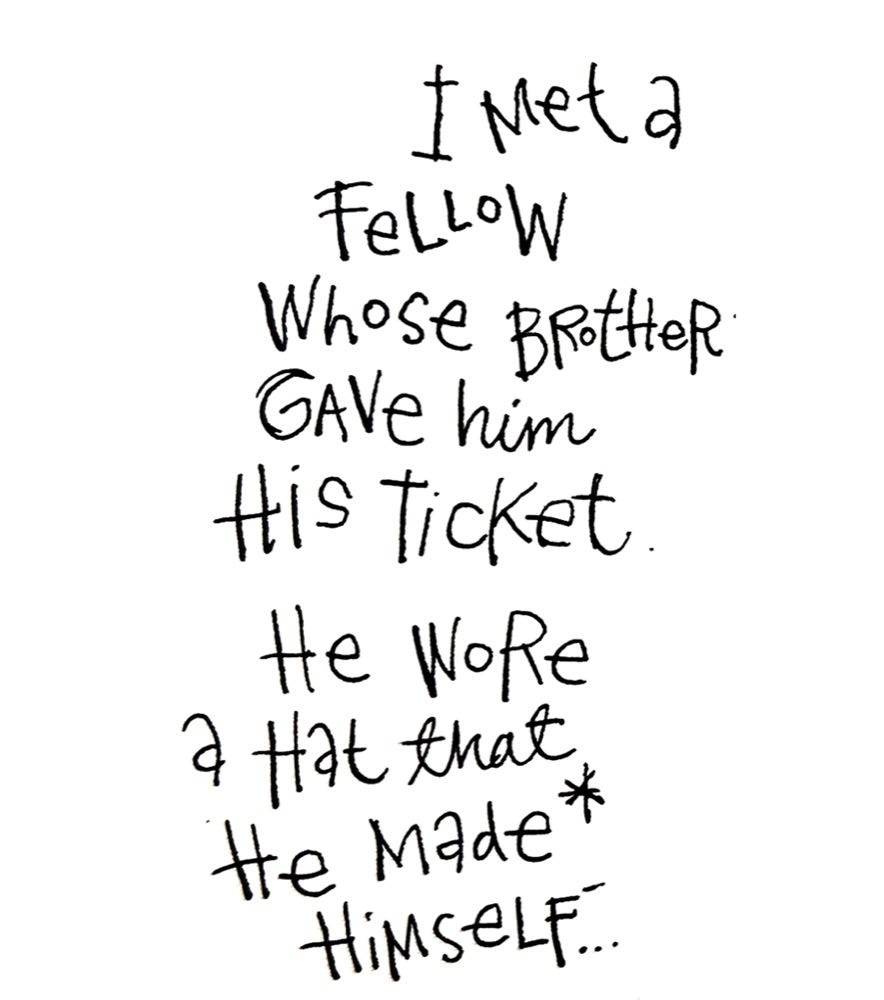 I Met a
FeLLoW
Whose BRotHeR
GAVe him
His Ticket.
He WoRe
a Hat that
He Made*
HiMseLF...